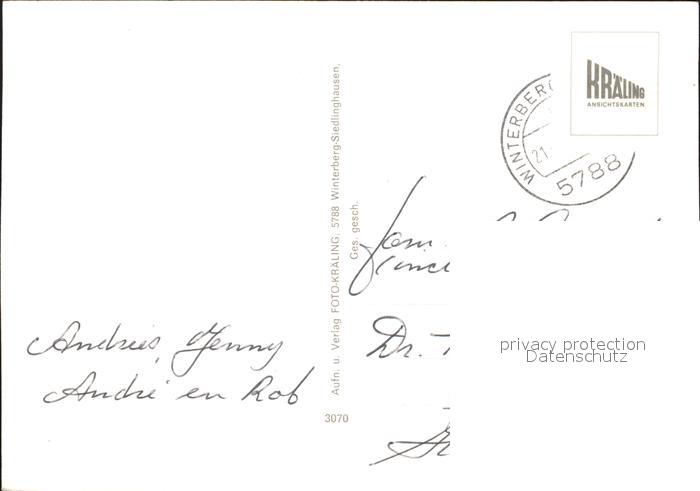 Andries, Jenny
André en Rob
Aufn. u. Verlag FOTO-KRÄLING, 5788 Winterberg-Siedlinghausen,
Ges. gesch.
3070
KRÄLING
ANSICHTSKARTEN
WINTERBERG
21
5788
Fam.
Dr.
privacy protection
Datenschutz